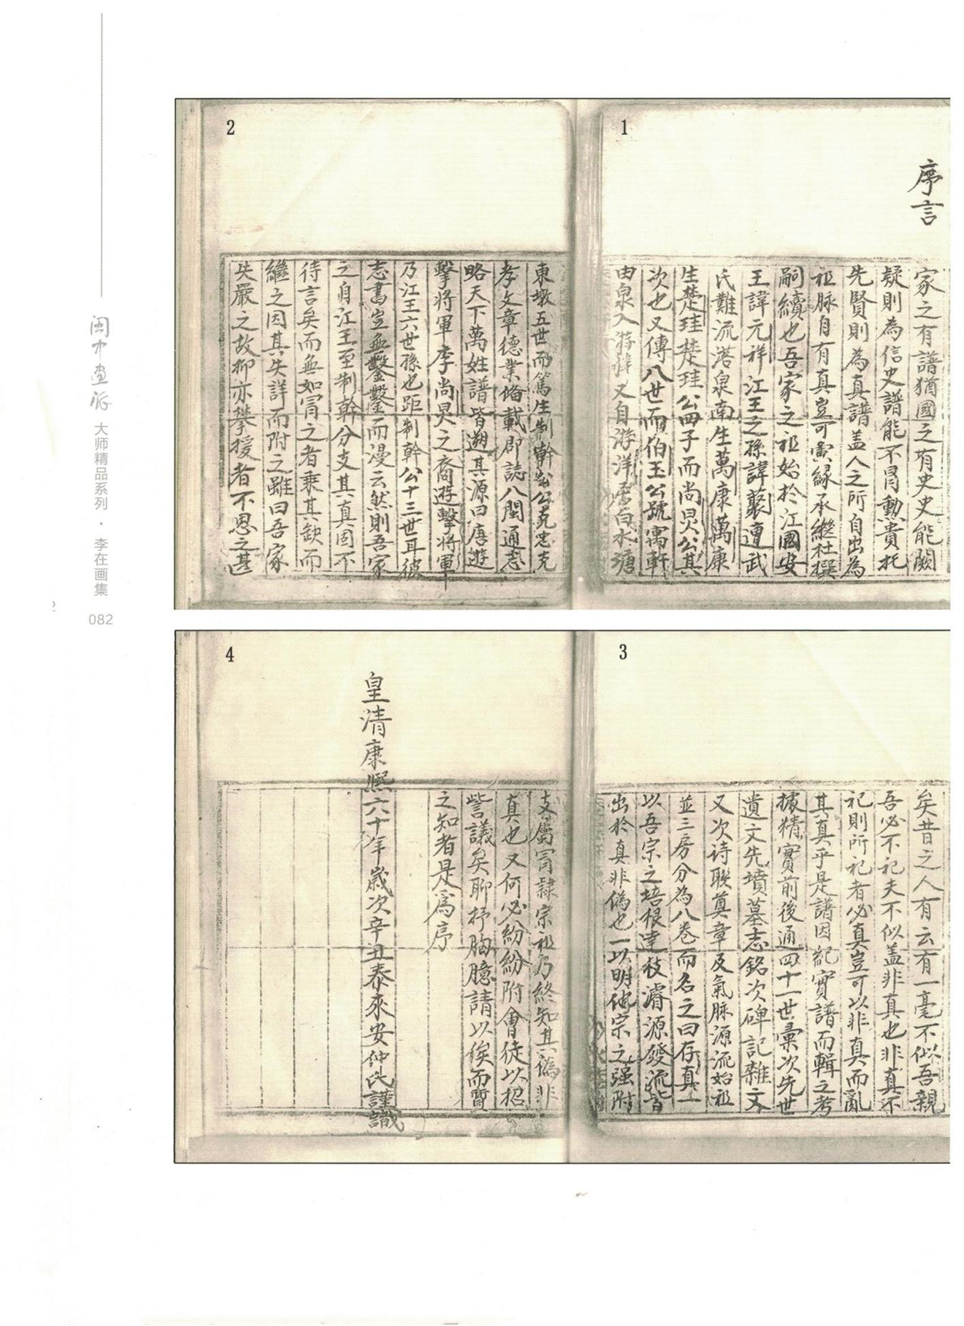 闽中画派
大师精品系列·李在画集
082
1
序言
家之有譜猶國之有史史能闕
疑則為信史譜能不冐勲貴托
先賢則為真譜盖人之所自出為
祖脉自有真豈可夤緣承繼杜撰
嗣續也吾家之祖始於江國安
王諱元祥江王之孫諱褧遭武
氏難流落泉南生萬康萬康
生楚珪楚珪公毋子而尚炅公其
次也又傳八世而伯王公號寓軒
由泉入莆 又自游洋居白水塘
2
東墩五世而篤生制幹 公克忠克
孝文章德業俻載郡誌八閩通志
略天下萬姓譜皆遡其源曰唐遊
擊將軍李尚炅之裔遊擊將軍
乃江王六世孫也距制幹公十三世耳彼
志書豈無鑿鑿而漫云然則吾家
之自江王至制幹分支其真固不
待言矣而無如冐之者乘其欽而
繼之因其失詳而附之雖曰吾家
失嚴之故抑亦攀援者不思之甚
3
矣昔之人有云有一毫不似吾親
吾必不祀夫不似盖非真也非真不
祀則所祀者必真豈可以非真而亂
其真乎是譜因紀實譜而輯之考
據精實前後通四十一世彙次先世
遺文先墳墓志銘次碑記雜文
又次诗聨真章及氣脉源流始祖
並三房分為八卷而名之曰存真一
以吾宗之培根達枝濬源發流皆
出於真非偽也一以明他宗之强附
4
支屬冐隸宗祖乃終知其偽非
真也又何必紛紛附會徒以招
訾議矣聊抒胸臆請以俟而質
之知者是爲序
皇清康熙六十年歲次辛丑泰來安仲氏謹識